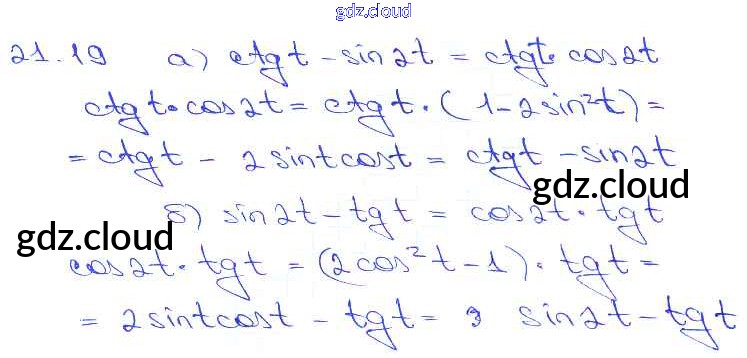 gdz.cloud
21.19 а) ctg t - sin 2t = ctgt · cos 2t
ctg t · cos 2t = ctg t · (1 - 2 sin²t) =
= ctg t - 2 sin t cos t = ctgt - sin 2t
gdz.cloud
б) sin 2t - tg t = cos 2t · tgt
gdz.cloud
cos 2t · tgt = (2cos²t - 1) · tgt =
= 2 sin t cos t - tgt = sin 2t - tgt